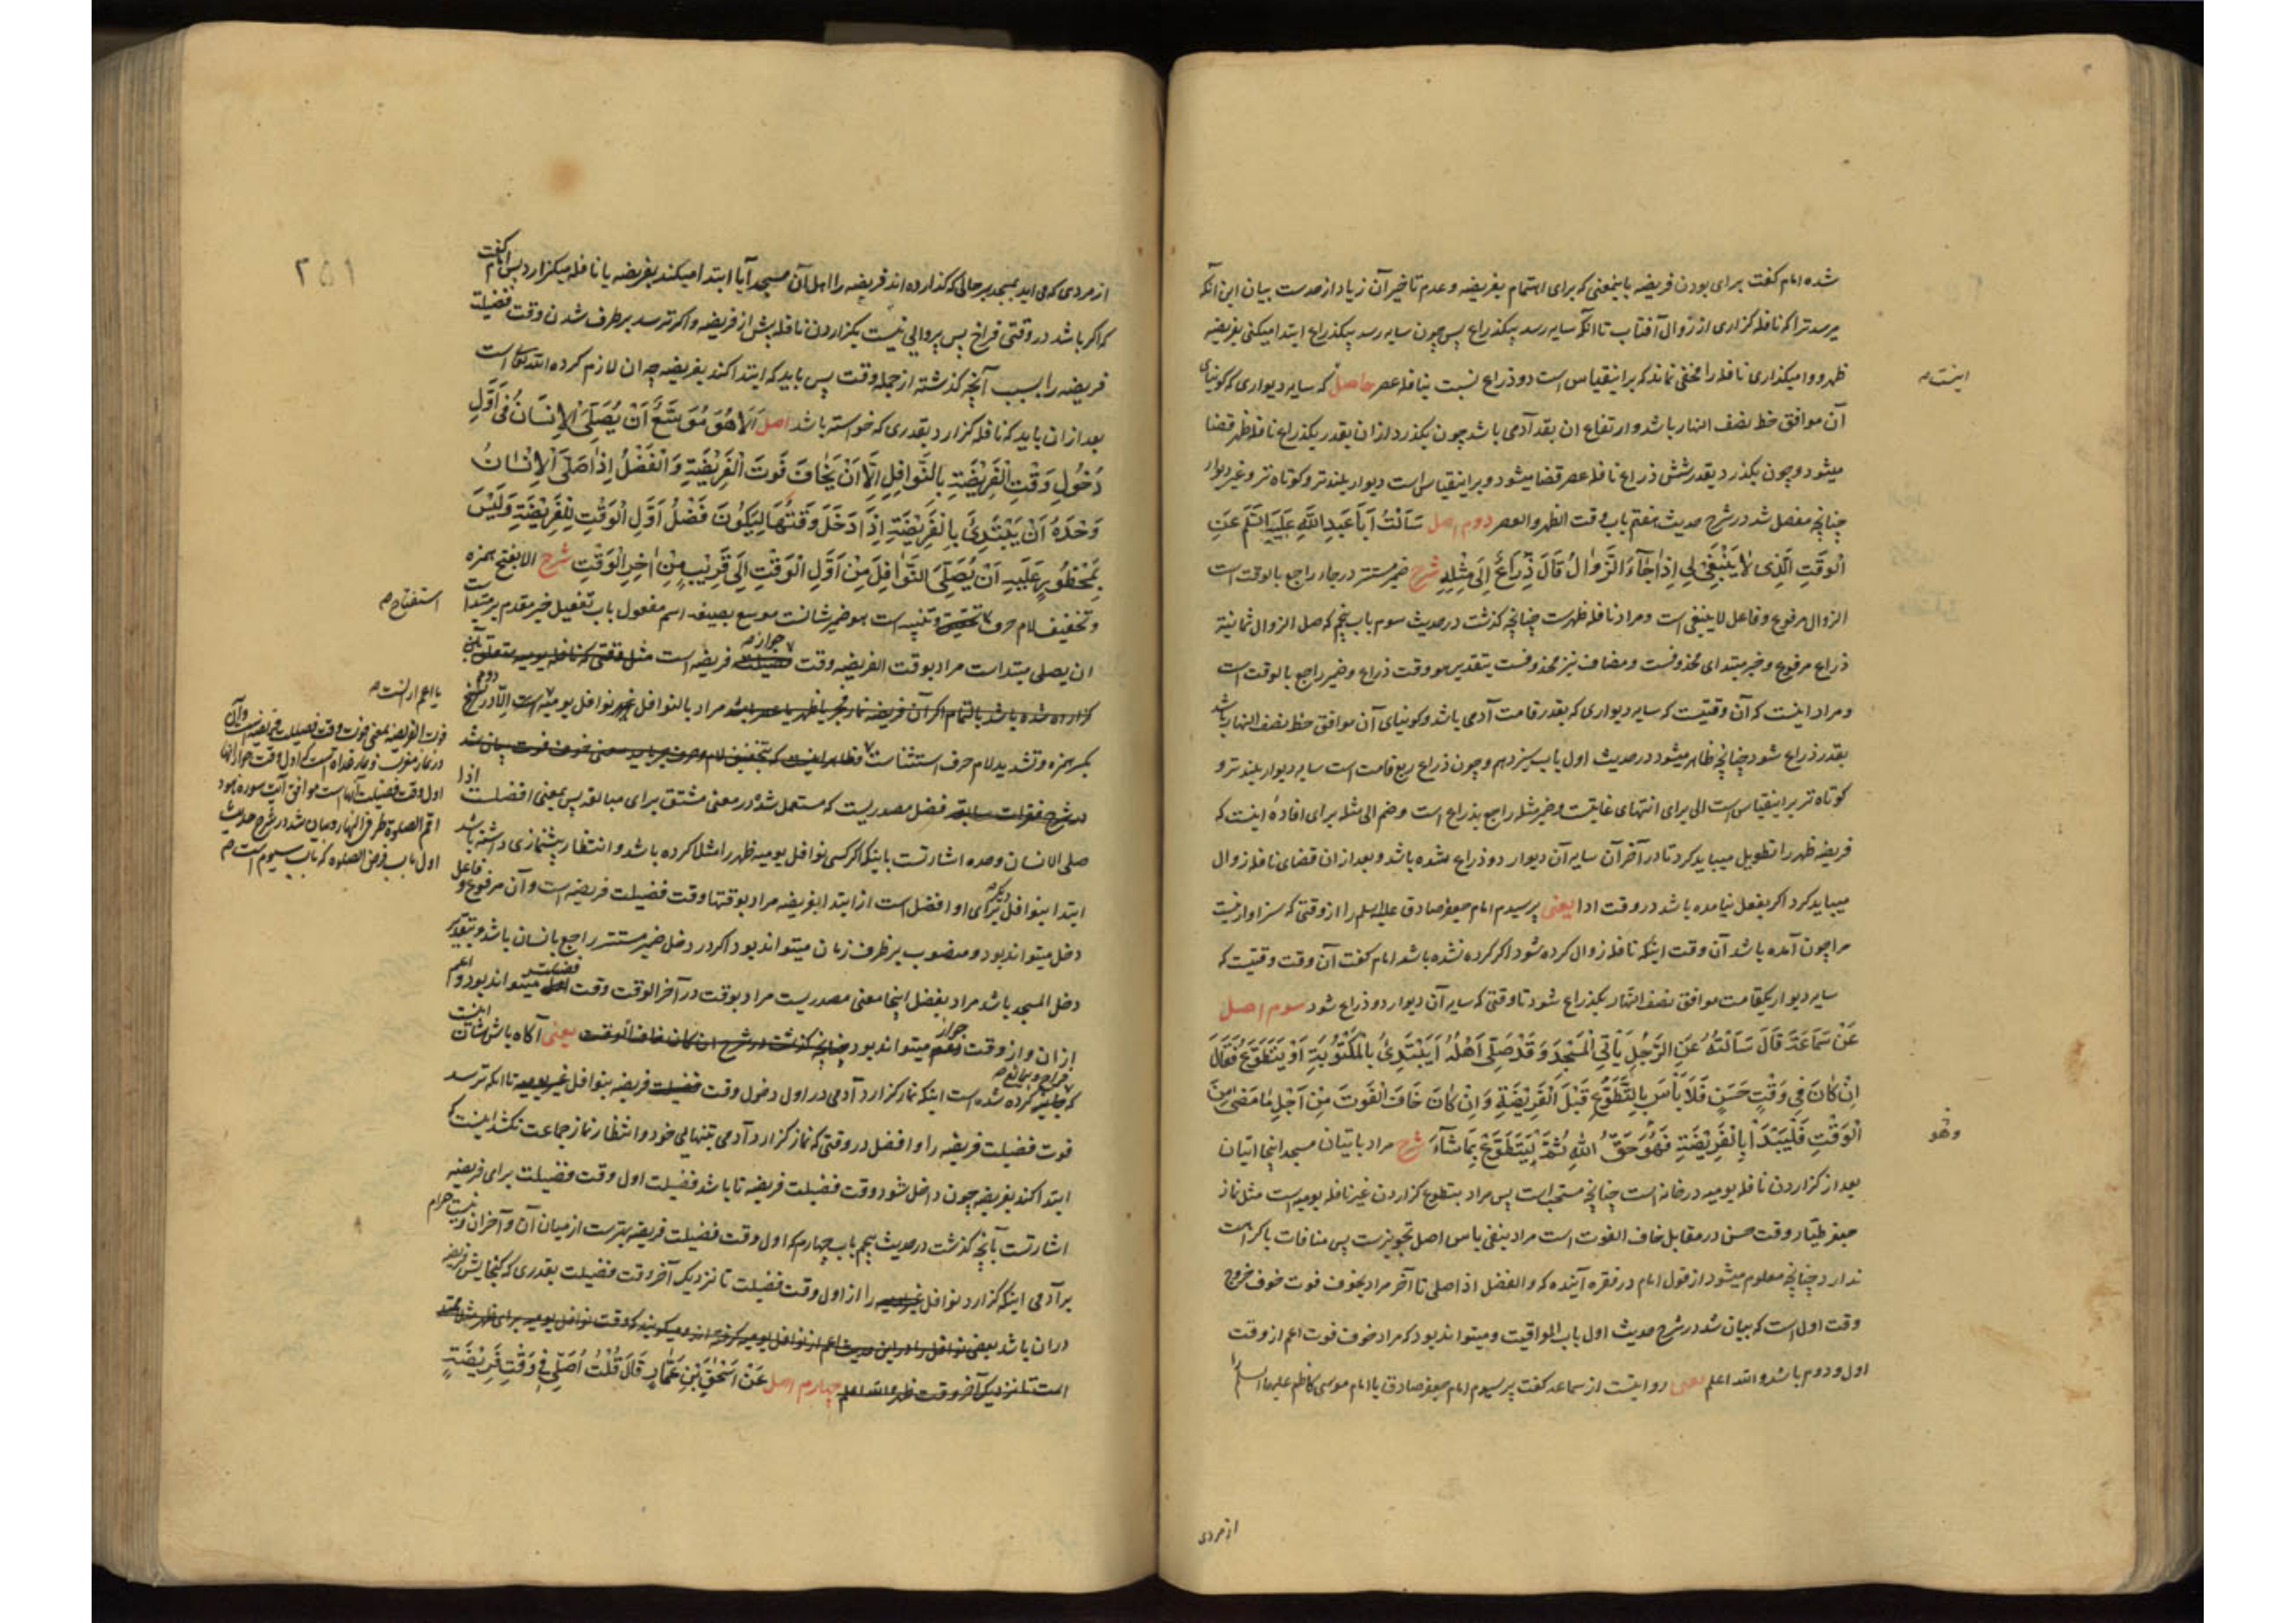 شده امام گفت برای بودن فریضه باینمعنی که برای اهتمام بفریضه و عدم تاخیر آن زیاد از حدست بیان این آنکه
میرسد ترا که نافله گزاری از زوال آفتاب تا آنکه سایه رسد بیکذراع پس چون سایه رسد بیکذراع ابتدا میکنی بفریضه
ظهر و وامیگذاری نافله را مخفی نماند که براینقیاس است دو ذراع نسبت بنافله عصر حاصل که سایه دیواری که کونیای
اینست
آن موافق خط نصف النهار باشد و ارتفاع ان بقد آدمی باشد چون بگذرد ازان بقدر یکذراع نافله ظهر قضا
میشود و چون بگذرد بقدر شش ذراع نافله عصر قضا میشود و براینقیاس است دیوار بلندتر و کوتاه تر و غیر دیوار
چنانچه مفصل شد در شرح حدیث هفتم باب وقت الظهر والعصر دوم اصل سَاَلْتُ اَبَا عَبْدِ اللّهِ عَلَيْهِ السَّلَم عَنِ
الْوَقْتِ الَّذِی لَا يَنْبَغِی لِی اِذَا جَآءَ الزَّوَالُ قَالَ ذِرَاعٌ اِلَی مِثْلِهِ شرح ضمیر مستتر در جاء راجع بالوقت است
الزوال مرفوع و فاعل لاینبغی است و مراد نافله ظهرست چنانچه گذشت در حدیث سوم باب پنجم که صل الزوال ثمانیة
ذراع مرفوع و خبر مبتدای محذوفست و مضاف نیز محذوفست بتقدیر هو وقت ذراع و ضمیر راجع بالوقت است
و مراد اینست که آن وقتیست که سایه دیواری که بقدر قامت آدمی باشد و کونیای آن موافق خط نصف النهار باشد
بقدر ذراع شود چنانچه ظاهر میشود در حدیث اول باب سیزدهم و چون ذراع ربع قامت است سایه دیوار بلندتر و
کوتاه تر براینقیاس است الی برای انتهای غایتست و ضمیر مثله راجع بذراع است و ضم الی مثله برای افاده اینست که
فریضه ظهر را تطویل میباید کرد تا در آخر آن سایه آن دیوار دو ذراع شده باشد و بعد ازان قضای نافله زوال
میباید کرد اگر بفعل نیامده باشد در وقت ادا یعنی پرسیدم امام جعفر صادق علیه السلم را از وقتی که سزاوار نیست
مرا چون آمده باشد آن وقت اینکه نافله زوال کرده شود اگر کرده نشده باشد امام گفت آن وقت وقتیست که
سایه دیوار یکقامت موافق نصف النهار یکذراع شود تا وقتی که سایه آن دیوار دو ذراع شود سوم اصل
عَنْ سَمَاعَةَ قَالَ سَاَلْتُهُ عَنِ الرَّجُلِ يَاْتِی الْمَسْجِدَ وَ قَدْ صَلَّی اَهْلُهُ اَيَبْتَدِئُ بِالْمَكْتُوبَةِ اَوْ يَتَطَوَّعُ فَقَالَ
اِنْ كَانَ فِی وَقْتٍ حَسَنٍ فَلَا بَاْسَ بِالتَّطَوُّعِ قَبْلَ الْفَرِيْضَةِ وَ اِنْ كَانَ خَافَ الْفَوْتَ مِنْ اَجْلِ مَا مَضَی مِنَ
الْوَقْتِ فَلْيَبْدَاْ بِالْفَرِيْضَةِ فَهُوَ حَقُّ اللّهِ ثُمَّ لْيَتَطَوَّعْ بِمَا شَآءَ شرح مراد باتیان مسجد اینجا اتیان
وَهُوَ
بعد از گزاردن نافله یومیه در خانه است چنانچه مستحب است پس مراد بتطوع گزاردن غیر نافله یومیه است مثل نماز
جعفر طیار وقت حسن در مقابل خاف الفوت است مراد بنفی باس اصل تجویزست پس منافات با کراهت
ندارد چنانچه معلوم میشود از قول امام در فقره آینده که والفضل اذا صلی تا آخر مراد بخوف فوت خوف خروج
وقت اول است که بیان شد در شرح حدیث اول باب المواقیت و میتواند بود که مراد خوف فوت اعم از وقت
اول و دوم باشد والله اعلم یعنی روایتست از سماعه گفت پرسیدم امام جعفر صادق یا امام موسی کاظم علیهما السلم را
از مردی
۲۵۱
از مردی که می اید بمسجد بر حالی که گذارده اند فریضه را اهل آن مسجد آیا ابتدا میکند بفریضه یا نافله میگزارد پس امام گفت
که اگر باشد در وقتی فراخ پس پروایی نیست بگزاردن نافله پیش از فریضه و اگر ترسد برطرف شدن وقت فضیلت
فریضه را بسبب آنچه گذشته از جمله وقت پس باید که ابتدا کند بفریضه چه ان لازم کرده الله تعالی است
بعد ازان باید که نافله گزارد بقدری که خواسته باشد اصل اَلَا هُوَ مُوَسَّعٌ اَنْ يُصَلِّیَ الْاِنْسَانُ فِی اَوَّلِ
دُخُولِ وَقْتِ الْفَرِيْضَةِ بِالنَّوَافِلِ اِلَّا اَنْ يَخَافَ فَوْتَ الْفَرِيْضَةِ وَ الْفَضْلُ اِذَا صَلَّی الْاِنْسَانُ
وَحْدَهُ اَنْ يَبْتَدِئَ بِالْفَرِيْضَةِ اِذَا دَخَلَ وَقْتُهَا لِيَكُونَ فَضْلُ اَوَّلِ الْوَقْتِ لِلْفَرِيْضَةِ وَ لَيْسَ
بِمَحْظُورٍ عَلَيْهِ اَنْ يُصَلِّیَ النَّوَافِلَ مِنْ اَوَّلِ الْوَقْتِ اِلَی قَرِيْبٍ مِنْ اٰخِرِ الْوَقْتِ شرح الا بفتح همزه
و تخفیف لام حرف تنبیه است هو ضمیر شانست موسع بصیغه اسم مفعول باب تفعیل خبر مقدم بر مبتدا ست
استفتاح
ان یصلی مبتداست مراد بوقت الفریضه وقت جواز فریضه است
مراد بالنوافل نوافل یومیه است الّا در
بکسر همزه و تشدید لام حرف استثناست
فضل مصدریست که مستعمل شده در معنی مشتق برای مبالغه پس بمعنی افضلست اذا
صلی الانسان وحده اشارتست باینکه اگر کسی نوافل یومیه ظهر را مثلا کرده باشد و انتظار پیشنمازی داشته باشد
ابتدا بنوافل دیگر برای او افضل است از ابتدا بفریضه مراد بوقتها وقت فضیلت فریضه است و آن مرفوع و فاعل
دخل میتواند بود و منصوب بر ظرف زمان میتواند بود اگر در دخل ضمیر مستتر راجع بانسان باشد و بتقدیر
دخل المسجد باشد مراد بفضل اینجا معنی مصدریست مراد بوقت در آخر الوقت وقت فضیلت میتواند بود و اعم
ازان و از وقت جواز میتواند بود یعنی آگاه باش شان اینست
که کرده شده است اینکه نماز گزارد آدمی در اول دخول وقت فریضه بنوافل تا آنکه ترسد
فوت فضیلت فریضه را و افضل در وقتی که نماز گزارد آدمی بتنهایی خود و انتظار نماز جماعت نکشد اینست که
ابتدا کند بفریضه چون داخل شود وقت فضیلت فریضه تا باشد فضیلت اول وقت فضیلت برای فریضه
اشارتست بآنچه گذشت در حدیث پنجم باب چهارم که اول وقت فضیلت فریضه بهترست از میان آن و آخران و نیست حرام
بر آدمی اینکه گزارد نوافل را از اول وقت فضیلت تا نزدیک آخر وقت فضیلت بقدری که گنجایش فریضه
دران باشد
چهارم اصل عَنْ اِسْحٰقَ بْنِ عَمَّارٍ قَالَ قُلْتُ اُصَلِّی فِی وَقْتِ فَرِيْضَةٍ